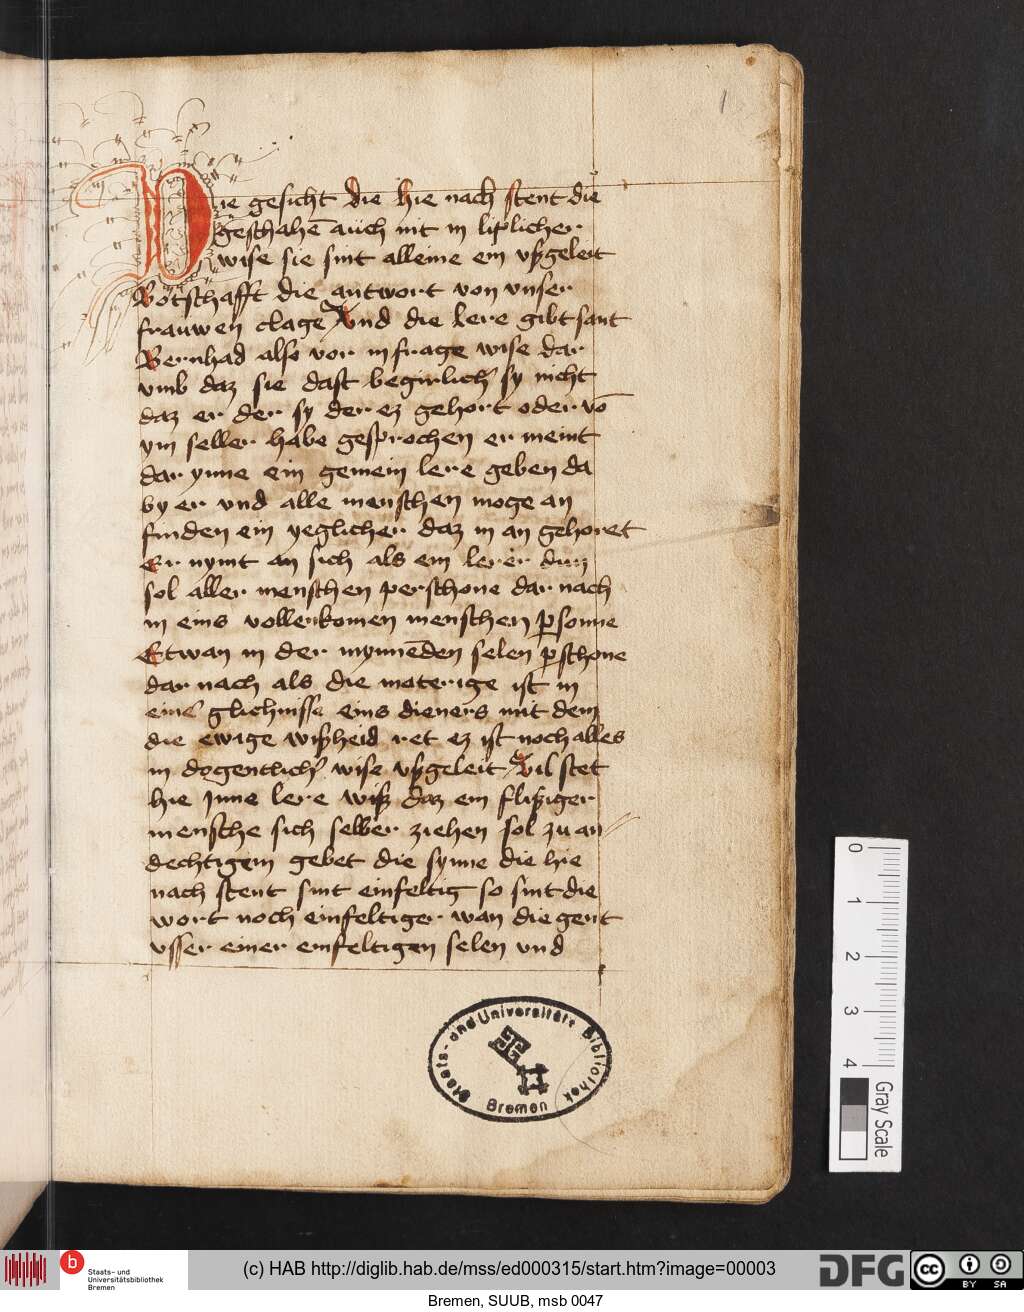 1
Die gesicht die hie nach stent die
geschahē auch nit in liplicher
wise sie sint alleine ein vßgeleit
Botschafft die antwort von vnser
frauwen clage Vnd die lere gibt sant
Bernhad also vor in frage wise dar
vmb daz sie dast begirlich sy nicht
daz er der sy der ez gehort oder vō
ym selber habe gesprochen er meint
dar ynne ein gemein lere geben da
by er vnd alle menschen moge an
finden ein yeglicher daz in an gehoret
Er nymt an sich als ein lerer dun
sol aller menschen perschone dar nach
in eins vollenkomen menschen psonne
Etwan in der mynnēden selen pschone
dar nach als die materige ist in
eine glichnisse eins dieners mit dem
die ewige wißheid ret ez ist noch alles
in dogentlich wise vßgeleit Vil stet
hie Inne lere wiß daz ein flißiger
mensche sich selber ziehen sol zu an
dechtigem gebet die synne die hie
nach stent sint einfeltig so sint die
wort noch einfeltiger wan die gent
vsser einer einfeltigen selen vnd
Staats- und Universitäts Bibliothek
Bremen
0
1
2
3
4
Gray Scale
b
Staats- und
Universitätsbibliothek
Bremen
(c) HAB http://diglib.hab.de/mss/ed000315/start.htm?image=00003
DFG
cc
BY SA
Bremen, SUUB, msb 0047